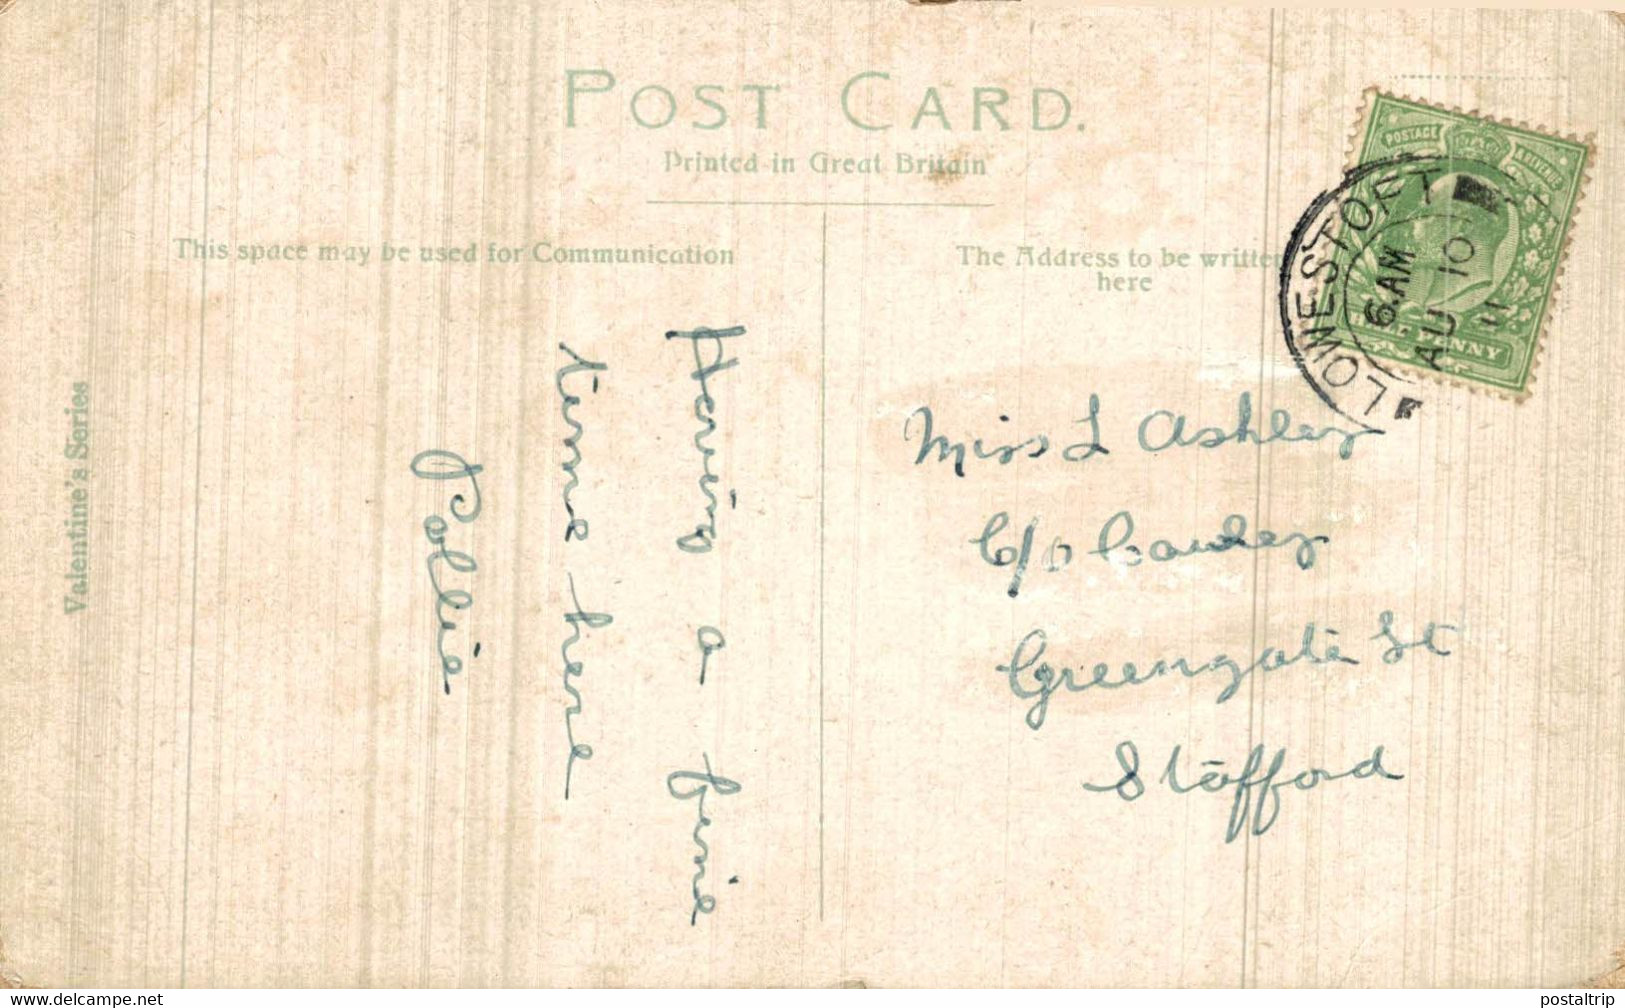 POST CARD.
Printed in Great Britain
This space may be used for Communication
The Address to be written
here
POSTAGE
LOWESTOFT
6.AM
AU 10
11
Valentine's Series
Having a fine
time here
Pollie
Miss L Ashley
C/o
Greengate St
Stafford
www.delcampe.net
postaltrip